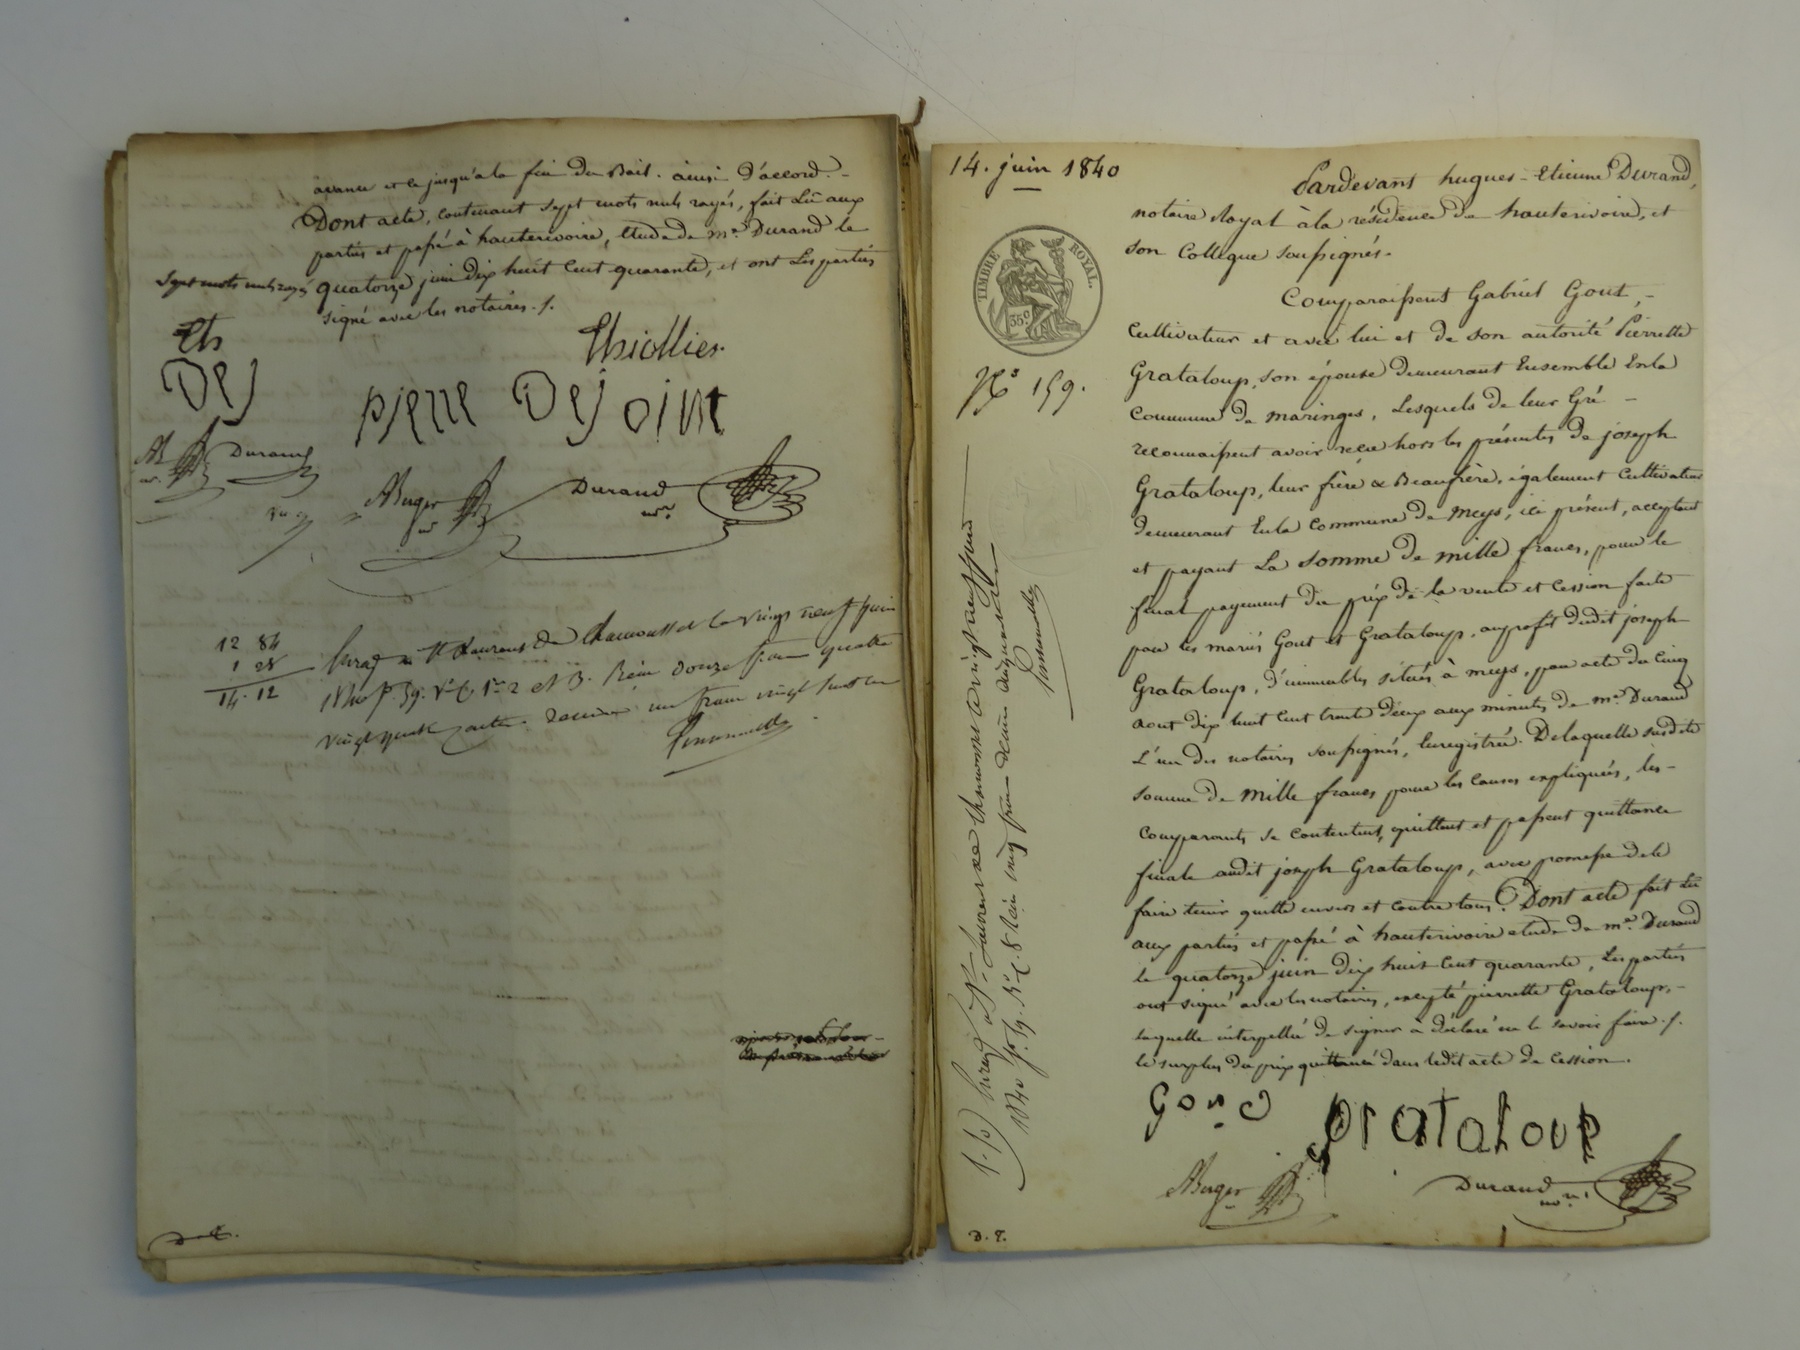 avance et ce jusqu'à la fin du Bail. ainsi D'accord. -
Dont acte, contenant sept mots nuls rayés, fait Lû aux
parties et passé à hauterivoire, Etude de me. Durand le
quatorze juin dix huit Cent quarante, et ont Les parties
signé avec les notaires ./.
Sept mots nuls rayés
Th
Thiollier
Dej
pierre Dejoint
AB
Durand
ABerger
Durand
nre
12 84
1 28
14. 12
Enreg. à St Laurent de Chamousset le vingt neuf juin
1840 fo. 39. Vo C. 1re 2 et 3. Reçu Douze francs quatre
vingt quatre centes. Décime un franc vingt huit ces
14. juin 1840
TIMBRE ROYAL.
35c
No 159.
Pardevant hugues-Etienne Durand,
notaire Royal à la résidence de hauterivoire, et
son Collègue soussignés.
Comparaissent Gabriel Gout, -
Cultivateur et avec lui et de son autorité Pierrette
Grataloup, son épouse demeurant Ensemble En la
Commune de maringes, Lesquels de leur Gré -
reconnaissent avoir reçu hors les présentes de joseph
Grataloup, leur frère & Beaufrère, également Cultivateur
demeurant En la Commune de meys, ici présent, acceptant
et payant La somme de mille francs, pour le
final payement du prix de la vente et Cession faite
par les mariés Gout et Grataloup, au profit dudit joseph
Grataloup, d'immeubles situés à meys, par acte du Cinq
aout dix huit Cent trente deux aux minutes de me. Durand
L'un des notaires soussignés, Enregistré. De laquelle susdite
somme de mille francs pour les Causes expliquées, les -
Comparants se Contentent, quittent et passent quittance
finale audit joseph Grataloup, avec promesse de le
faire tenir quitte envers et contre tous. Dont acte fait Lu
aux parties et passé à hauterivoire etude de me. Durand
le quatorze juin dix huit Cent quarante, Les parties
ont signé avec les notaires, excepté pierrette Grataloup, -
laquelle interpellée de signer a déclaré ne le savoir faire ./.
le surplus du prix quittancé dans ledit acte de Cession.
Enreg. à St. Laurent de Chamousset le vingt neuf juin
1840 fo. 39. Vo C. 8 Reçu cinq francs décime cinquante centes
Gout
grataloup
ABerger
Durand
nre
D. E.